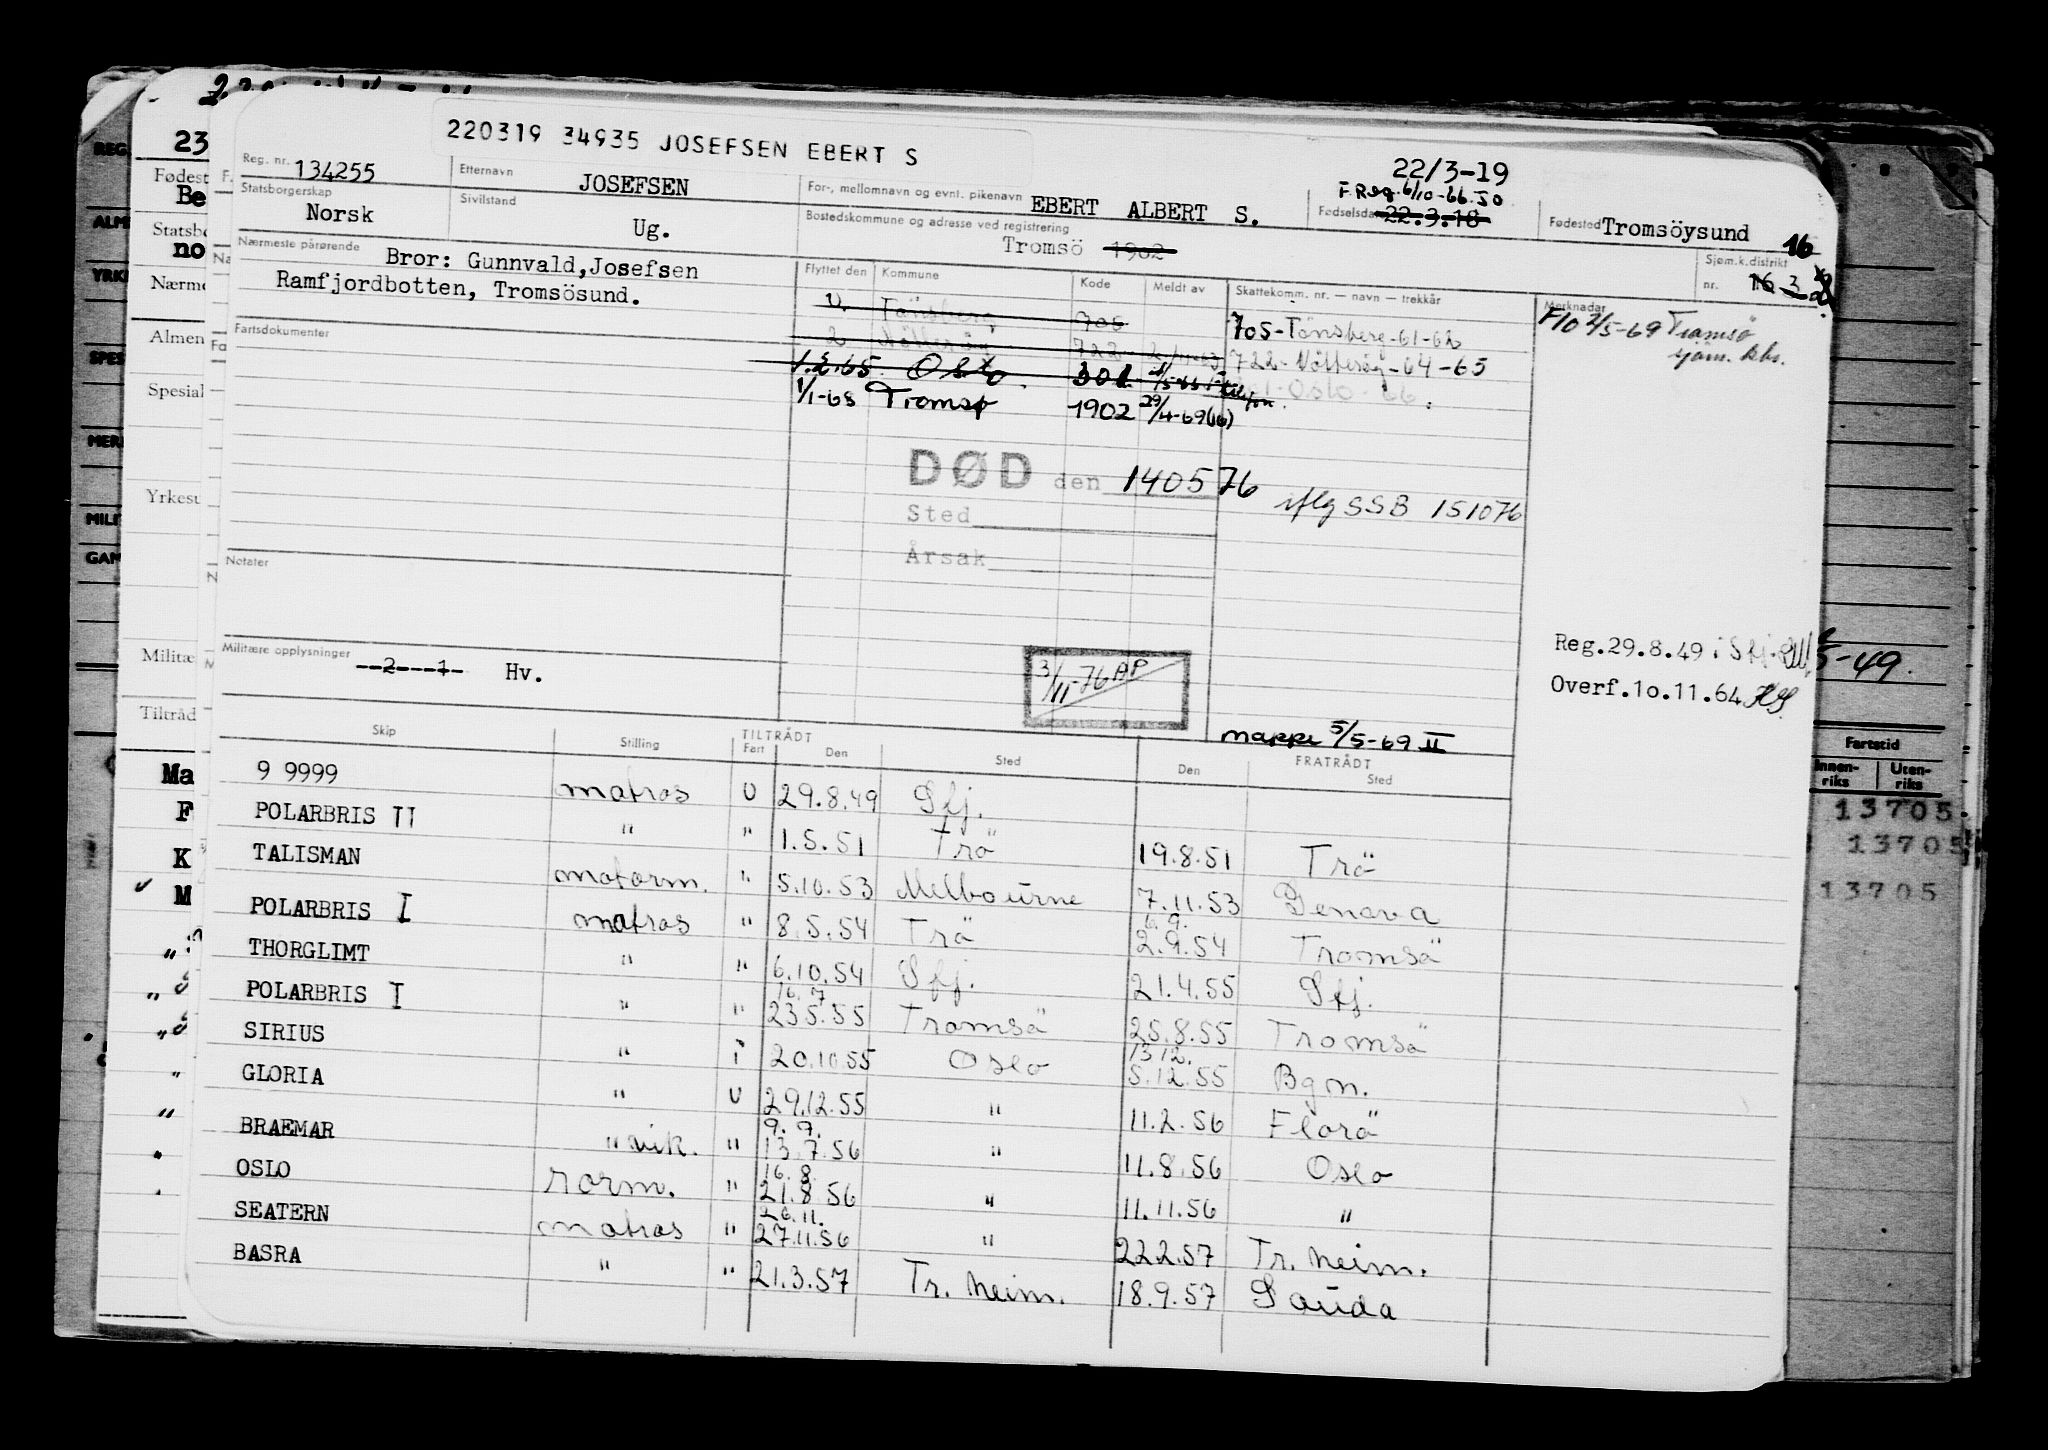 220319 34935 JOSEFSEN EBERT S
22/3-19
Reg. nr. 134255
Etternavn JOSEFSEN
For-, mellomnavn og evnt. pikenavn EBERT ALBERT S.
F.Reg. 6/10-66. JO
Fødselsda 22.3.18
Fødested Tromsöysund
16
Statsborgerskap Norsk
Sivilstand Ug.
Bostedskommune og adresse ved registrering
Tromsö 1902
Sjøm.k.distrikt
nr. 16 3
Nærmeste pårørende Bror: Gunnvald,Josefsen
Ramfjordbotten, Tromsösund.
Flyttet den Kommune Kode Meldt av Skattekomm. nr. — navn — trekkår Merknader
U Tönsberg 705 705-Tönsberg-61-62
2 Nötteröy 722 722-Nötteröy-64-65
1.2.65 Oslo 301 Oslo-66
1/1-68 Tromsø 1902 29/4-69(16)
F10 2/5-69 Tromsö
sjöm. kks.
Fartsdokumenter
DØD den 140576 iflg SSB 151076
Sted
Årsak
Notater
Militære opplysninger --2---1- Hv.
3/11-76 AP
Reg.29.8.49 i Sfj.
Overf.10.11.64
mappe 5/5-69 II
Skip Stilling TILTRÅDT FRATRÅDT
Fart Den Sted Den Sted
9 9999 matros U 29.8.49 Sfj.
POLARBRIS II " " 1.5.51 Trö 19.8.51 Trö
TALISMAN motorm. " 5.10.53 Melbourne 7.11.53 Genova
6.9.
POLARBRIS I matros " 8.5.54 Trö 2.9.54 Tromsö
THORGLIMT " " 6.10.54 Sfj. 21.4.55 Sfj.
16.7
POLARBRIS I " " 23.5.55 Tromsö 25.8.55 Tromsö
13 12.
SIRIUS " i 20.10.55 Oslo 5.12.55 Bgn.
GLORIA " U 29.12.55 " 11.2.56 Florö
9.7.
BRAEMAR " vik. " 13.7.56 " 11.8.56 Oslo
16.8.
OSLO rorm. " 21.8.56 " 11.11.56 "
26.11.
SEATERN matros " 27.11.56 " 22.2.57 Tr.heim.
BASRA " " 21.3.57 Tr.heim. 18.9.57 Sauda
23
Fødest
Be
no
Nærme
Almen
Spesial
Militæ
Tiltråd
Ma
F
K
M
5-49.
Fartstid
Innen-riks Uten-riks
13705
13705
13705